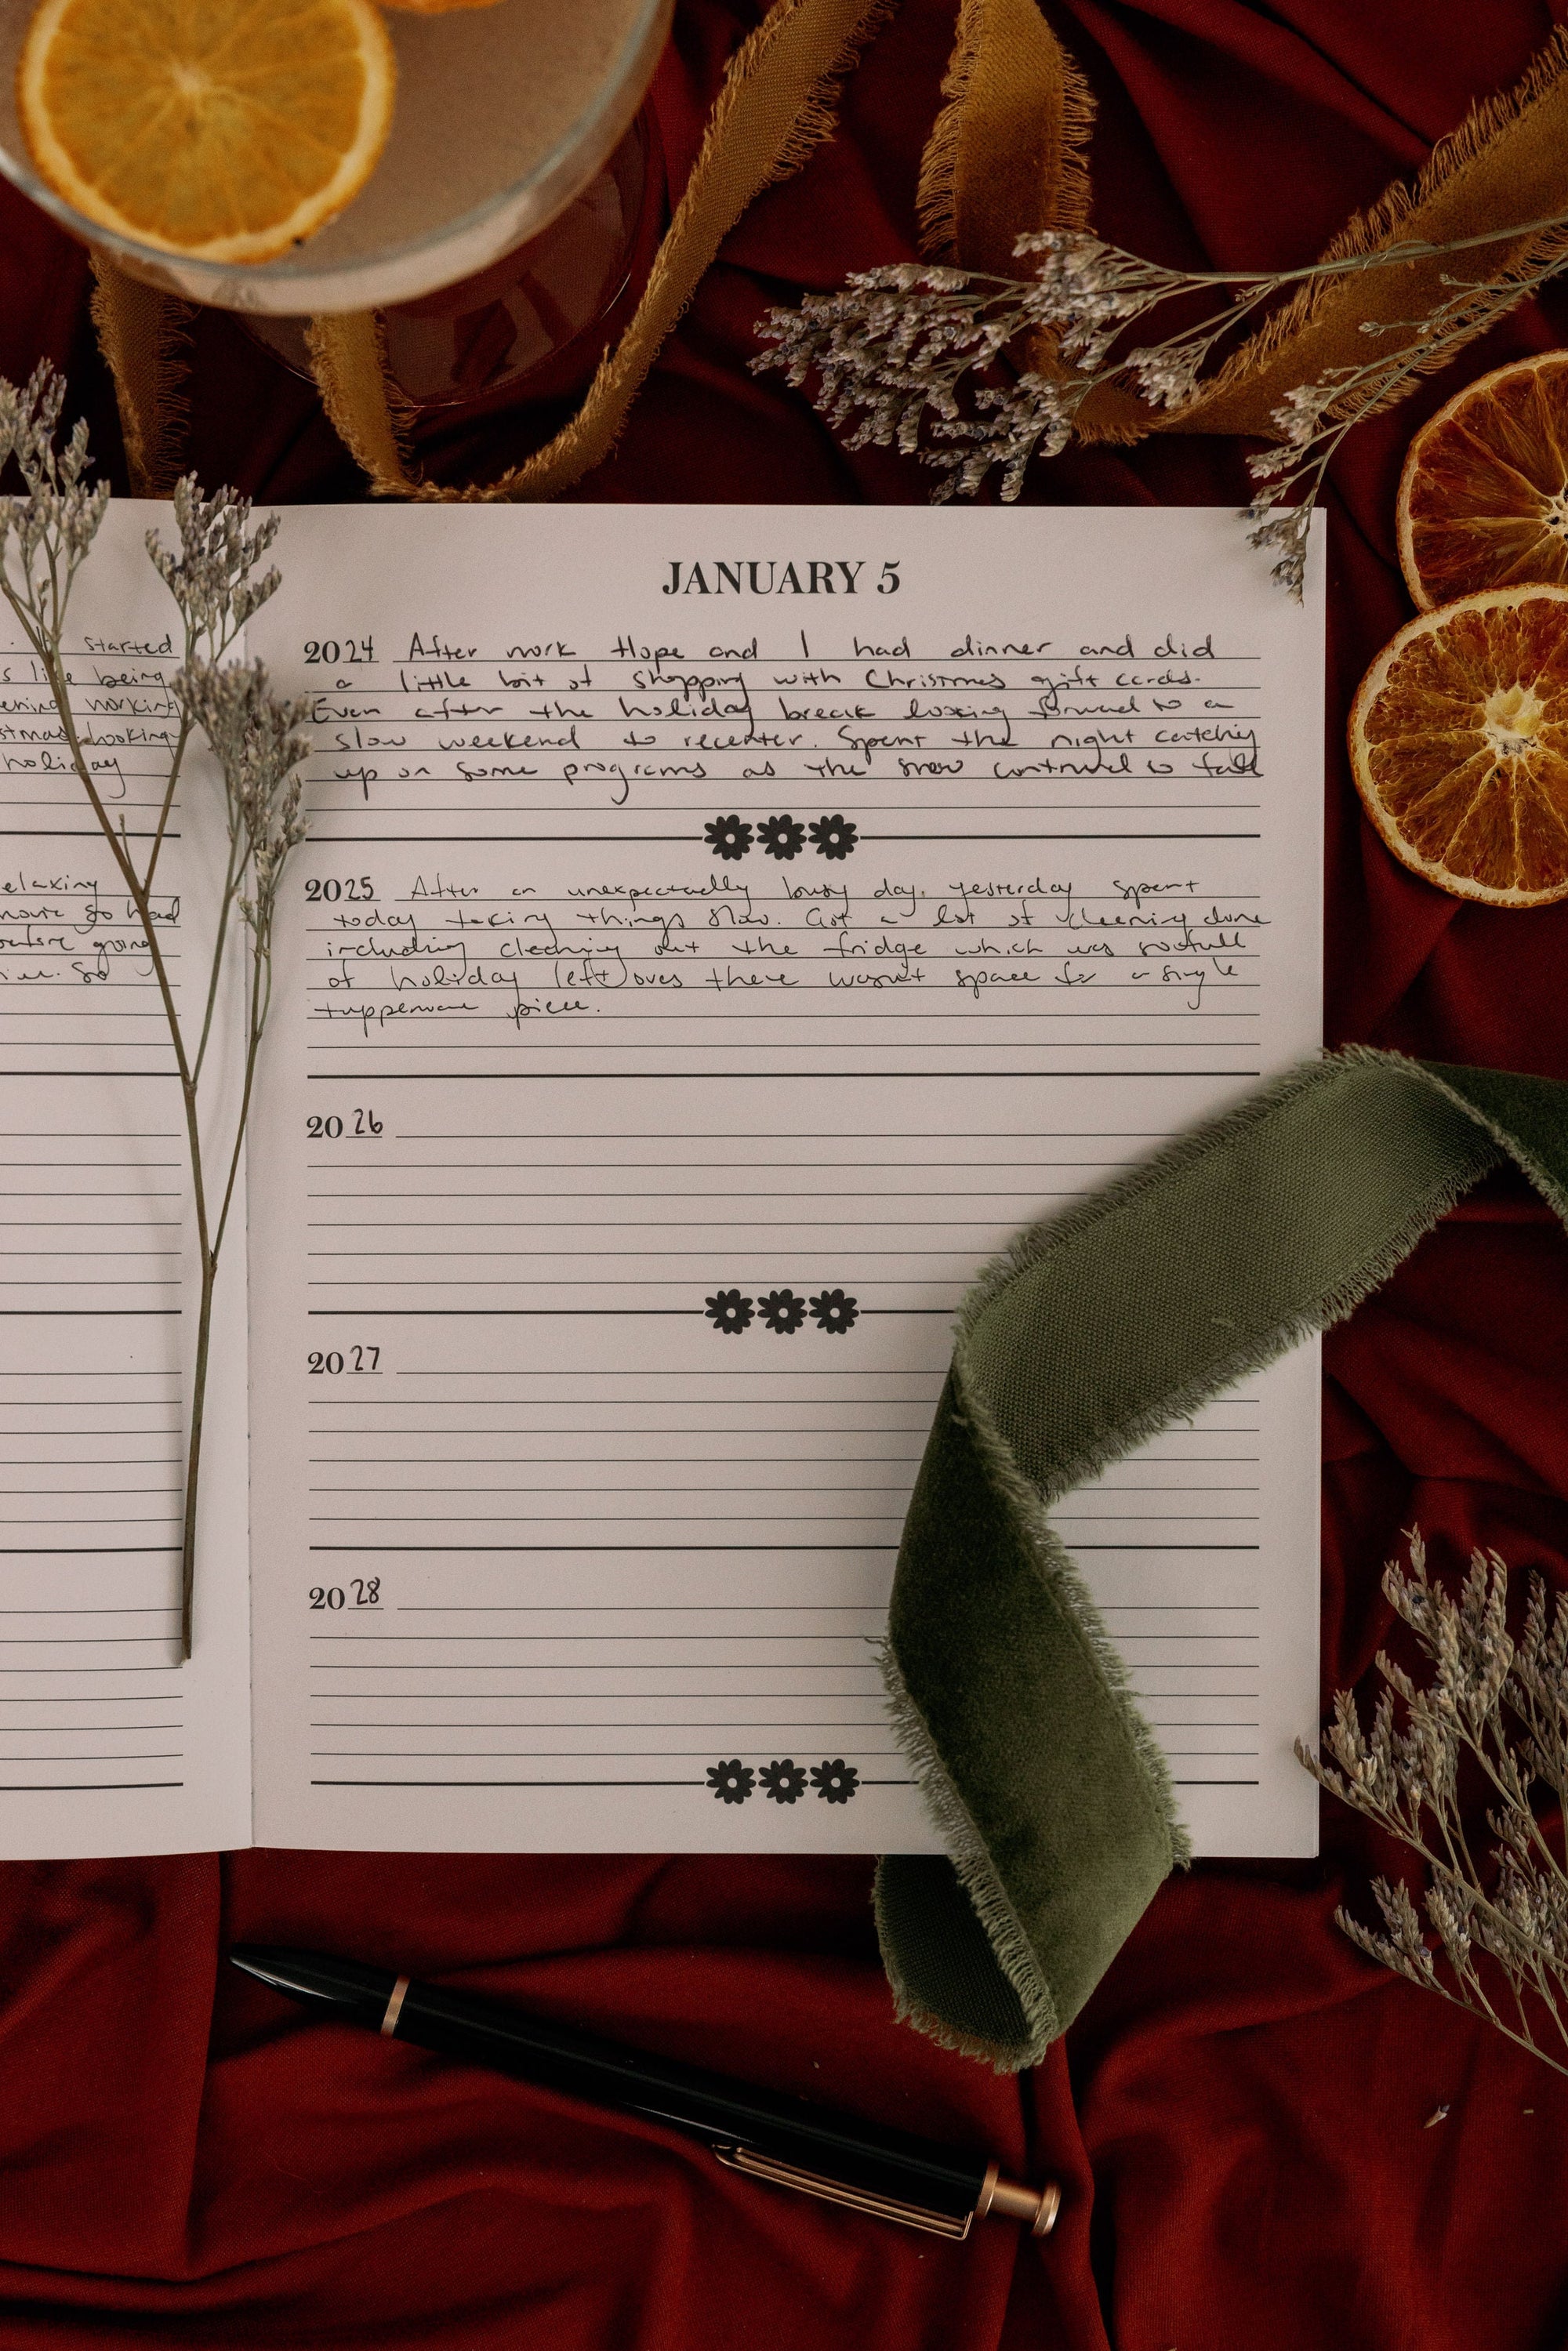 started
being
working
holiday
elaxing
more so had
going
so
JANUARY 5
2024 After work Hope and I had dinner and did
a little bit of shopping with Christmas gift cards.
Even after the holiday break looking forward to a
slow weekend to recenter. Spent the night catching
up on some programs as the snow continued to fall
2025 After an unexpectedly busy day, yesterday spent
today taking things slow. Got a lot of cleaning done
including cleaning out the fridge which was so full
of holiday leftovers there wasn't space for a single
tupperware piece.
2026
2027
2028